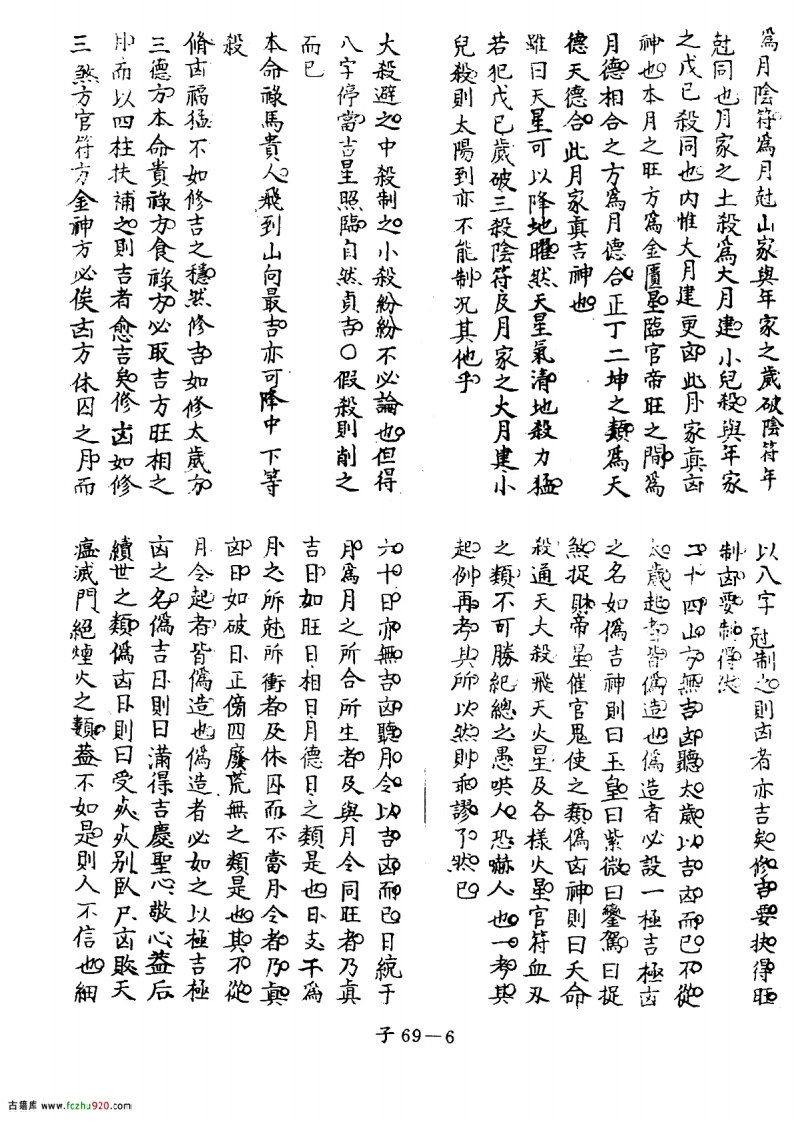 為月陰符為月尅山家與年家之歲破陰符年
尅同也月家之土殺為大月建小兒殺與年家
之戊已殺同也内惟大月建更凶此月家真凶
神也本月之旺方為金匱星臨官帝旺之間為
月德相合之方為月德合正丁二坤之類為天
德天德合此月家真吉神也
雖曰天星可以降地曜然天星氣清地殺力猛
若犯戊已歲破三殺陰符及月家之大月建小
兒殺則太陽到亦不能制况其他乎
大殺避之中殺制之小殺紛紛不必論也但得
八字停當吉星照臨自然貞吉〇假殺則削之
而已
本命祿馬貴人飛到山向最吉亦可降中下等
殺
脩凶福猛不如修吉之穩然修吉如修太歲方
三德方本命貴祿方食祿方必取吉方旺相之
月而以四柱扶補之則吉者愈吉矣修凶如修
三煞方官符方金神方必俟凶方休囚之月而
以八字尅制之則凶者亦吉矣修吉要扶得旺
制凶要制得伏
二十四山方無吉凶聽太歲以吉凶而已不從
太歲起者皆偽造也偽造者必設一極吉極凶
之名如偽吉神則曰玉皇曰紫微曰鑾駕曰捉
煞捉財帝星催官鬼使之類偽凶神則曰天命
殺通天大殺飛天火星及各樣火星官符血刃
之類不可勝紀總之愚哄人恐嚇人也一考其
起例再考其所以然則乖謬了然已
六十日亦無吉凶聽月令以吉凶而已日統于
月為月之所合所生者及與月令同旺者乃真
吉日如旺日相日月德日之類是也日支干為
月之所尅所衝者及休囚而不當月令者乃真
凶日如破日正傍四廢荒無之類是也其不從
月令起者皆偽造也偽造者必如之以極吉極
凶之名偽吉日則曰滿得吉慶聖心敬心益后
續世之類偽凶日則曰受死死别臥尸凶敗天
瘟滅門絕煙火之類蓋不如是則人不信也細
子69—6
古籍库 www.fczhu920.com